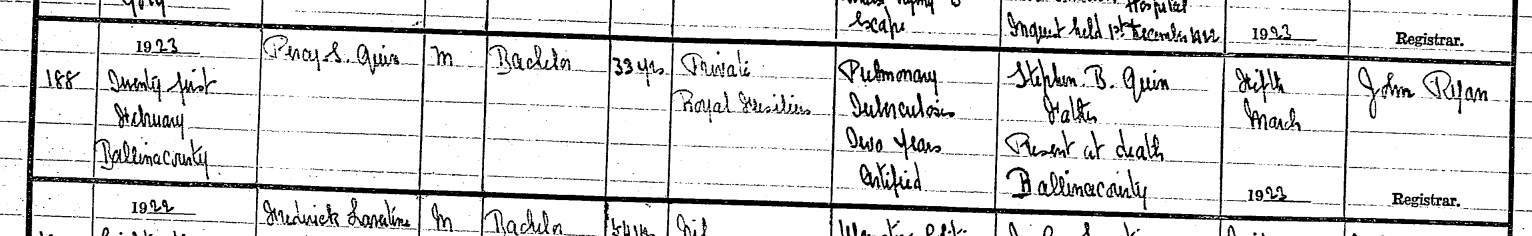 Escape
Hospital
Inquest held 1st December 1922
1923
Registrar.
188
1923
Twenty first
February
Ballinacourty
Percy S. Quin
M
Bachelor
33 yrs
Private
Royal Fusiliers
Pulmonary
Tuberculosis
Two years
Certified
Stephen. B. Quin
Father
Present at death
Ballinacourty
Fifth
March
1923
John Ryan
Registrar.
1922
Frederick
M
Bachelor